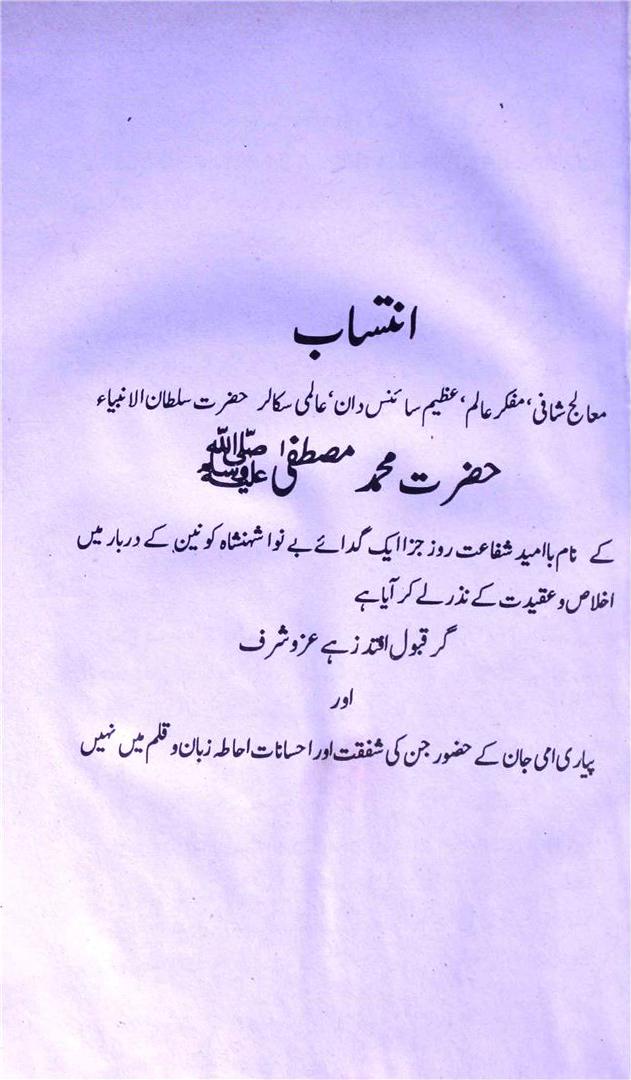 انتساب
معالج شافی، مفکر عالم، عظیم سائنس دان، عالمی سکالر حضرت سلطان الانبیاء
حضرت محمد مصطفیٰ صلی اللہ علیہ وسلم
کے نام باامید شفاعت روز جزا ایک گدائے بے نوا شہنشاہ کونین کے دربار میں
اخلاص و عقیدت کے نذر لے کر آیا ہے
گر قبول افتد زہے عز و شرف
اور
پیاری امی جان کے حضور جن کی شفقت اور احسانات احاطہ زبان و قلم میں نہیں